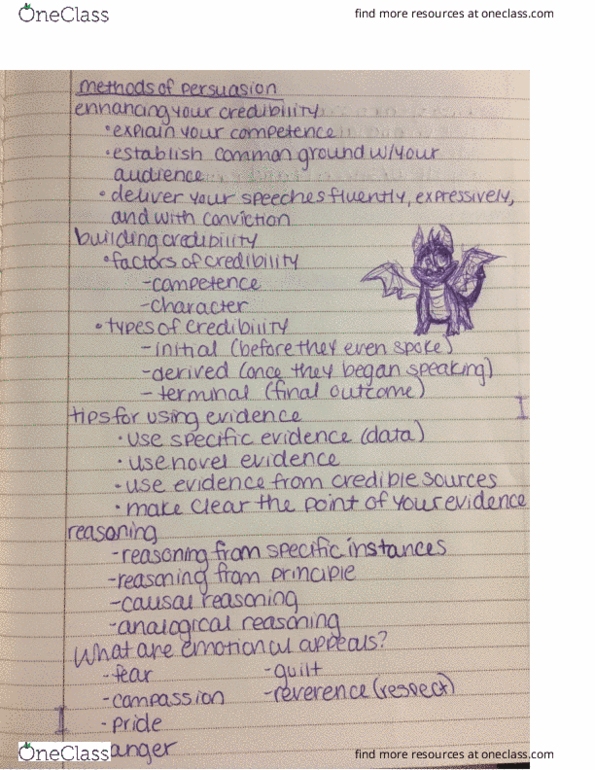 OneClass
find more resources at oneclass.com
methods of persuasion
enhancing your credibility
• explain your competence
• establish common ground w/your
audience
• deliver your speeches fluently, expressively,
and with conviction
building credibility
• factors of credibility
-competence
-character
• types of credibility
-initial (before they even spoke)
-derived (once they began speaking)
- terminal (final outcome)
tips for using evidence
• use specific evidence (data)
• use novel evidence
• use evidence from credible sources
• make clear the point of your evidence
reasoning
-reasoning from specific instances
-reasoning from principle
-causal reasoning
-analogical reasoning
What are emotional appeals?
-fear -guilt
-compassion -reverence (respect)
-pride
anger
OneClass
find more resources at oneclass.com